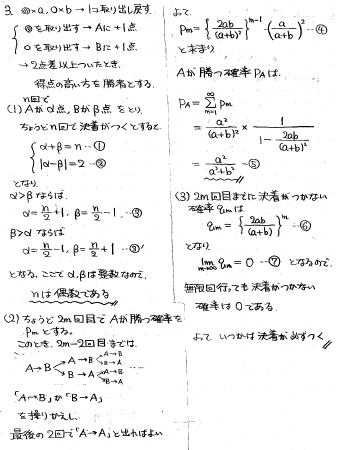 3. ◎×a, ○×b → 1コ取り出し戻す.
◎を取り出す → Aに+1点
○を取り出す → Bに+1点
→ 2点差以上ついたとき,
得点の高い方を勝者とする.
n回で
(1) Aがα点, Bがβ点をとり,
ちょうどn回で決着がつくとすると.
α+β=n …①
|α-β|=2 …②
となり
α>βならば
α=n/2+1, β=n/2-1 …③
β>αならば
α=n/2-1, β=n/2+1 …③'
となる. ここでα,βは整数なので.
nは偶数である
(2) ちょうど2m回目でAが勝つ確率を
Pmとする.
このとき, 2m-2回目までは.
A→B A→B A→B
B→A
B→A A→B
B→A
「A→B」か「B→A」
を繰りかえし.
最後の2回で「A→A」と出ればよい
よって.
Pm={2ab/(a+b)²}^(m-1)・(a/(a+b))² …④
と求まり
Aが勝つ確率PAは.
PA=∑[m=1,∞] Pm
=a²/(a+b)² × 1/(1-2ab/(a+b)²)
=a²/(a²+b²) …⑤
(3) 2m回目までに決着がつかない
確率qmは
qm={2ab/(a+b)²}^m …⑥
となり
lim[m→∞] qm=0 …⑦ となるので.
無限回行っても決着がつかない
確率は0である.
よって いつかは決着が必ずつく